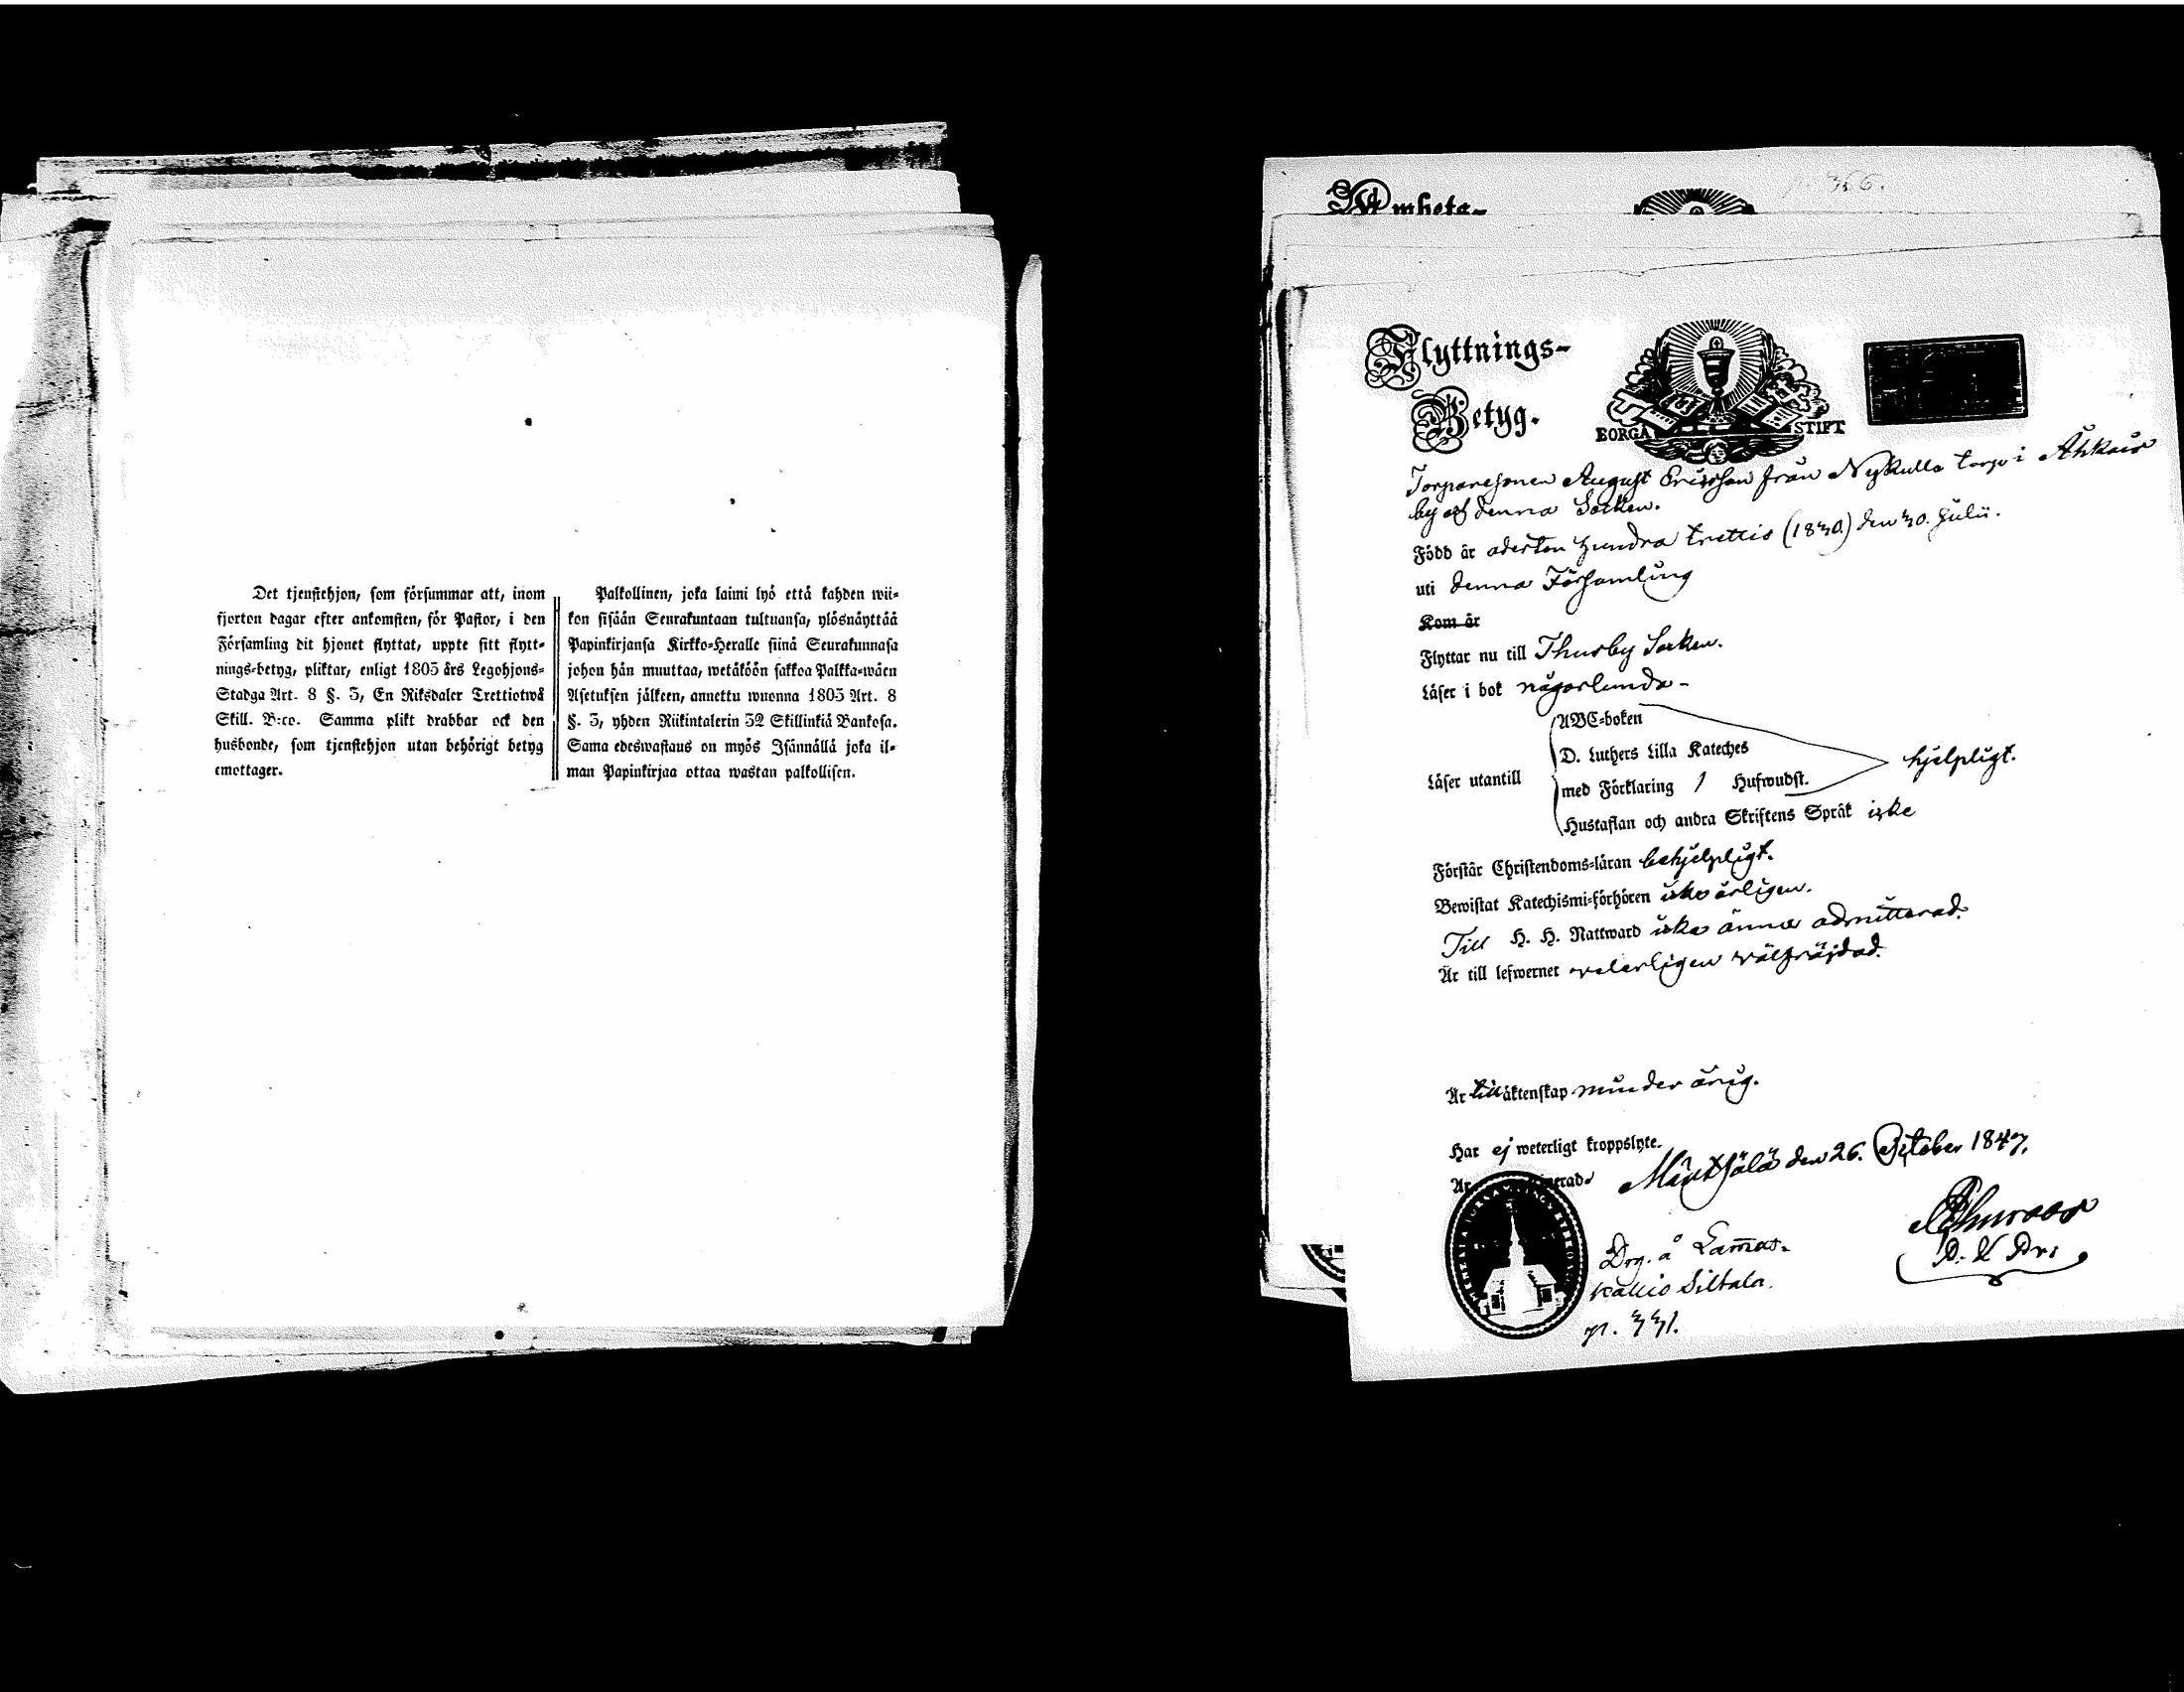 Det tjenstehjon, som försummar att, inom
fjorton dagar efter ankomsten, för Pastor, i den
Församling dit hjonet flyttat, uppte sitt flytt-
nings-betyg, pliktar, enligt 1805 års Legohjons-
Stadga Art. 8 §. 3, En Riksdaler Trettiotwå
Skill. B:co. Samma plikt drabbar ock den
husbonde, som tjenstehjon utan behörigt betyg
emottager.
Palkollinen, joka laimi lyö että kahden wii-
kon sisään Seurakuntaan tultuansa, ylösnäyttää
Papinkirjansa Kirkko-Heralle siinä Seurakunnasa
johon hän muuttaa, wetäköön sakkoa Palkka-wäen
Asetuksen jälkeen, annettu wuonna 1805 Art. 8
§. 3, yhden Riikintalerin 32 Skillinkiä Bankosa.
Sama edeswastaus on myös Isännällä joka il-
man Papinkirjaa ottaa wastan palkollisen.
366.
Ambets-
Flyttnings-
Betyg.
BORGÅ STIFT
Torparesonen August Ericsson från Nykulla torp i
by af denna Socken.
Född år aderton hundra trettio (1830.) den 30. Julii.
uti denna Församling
Kom år
Flyttar nu till Thusby Socken.
Läser i bok någorlunda -
Läser utantill
ABC-boken
D. Luthers Lilla Kateches
med Förklaring 1 Hufwudst.
hjelpligt.
Hustaflan och andra Skriftens Språk icke
Förstår Christendoms-läran behjelpligt.
Bewistat Katechismi-förhören icke årligen.
Till H. H. Nattward icke ännu admitterad.
Är till lefwernet veterligen välfräjdad.
Är till äktenskap minder årig.
Har ej weterligt kroppslyte.
Är nerad
Mäntsälä den 26. October 1847.
Drg. å Lam̄as-
kallio Siltala.
p. 331.